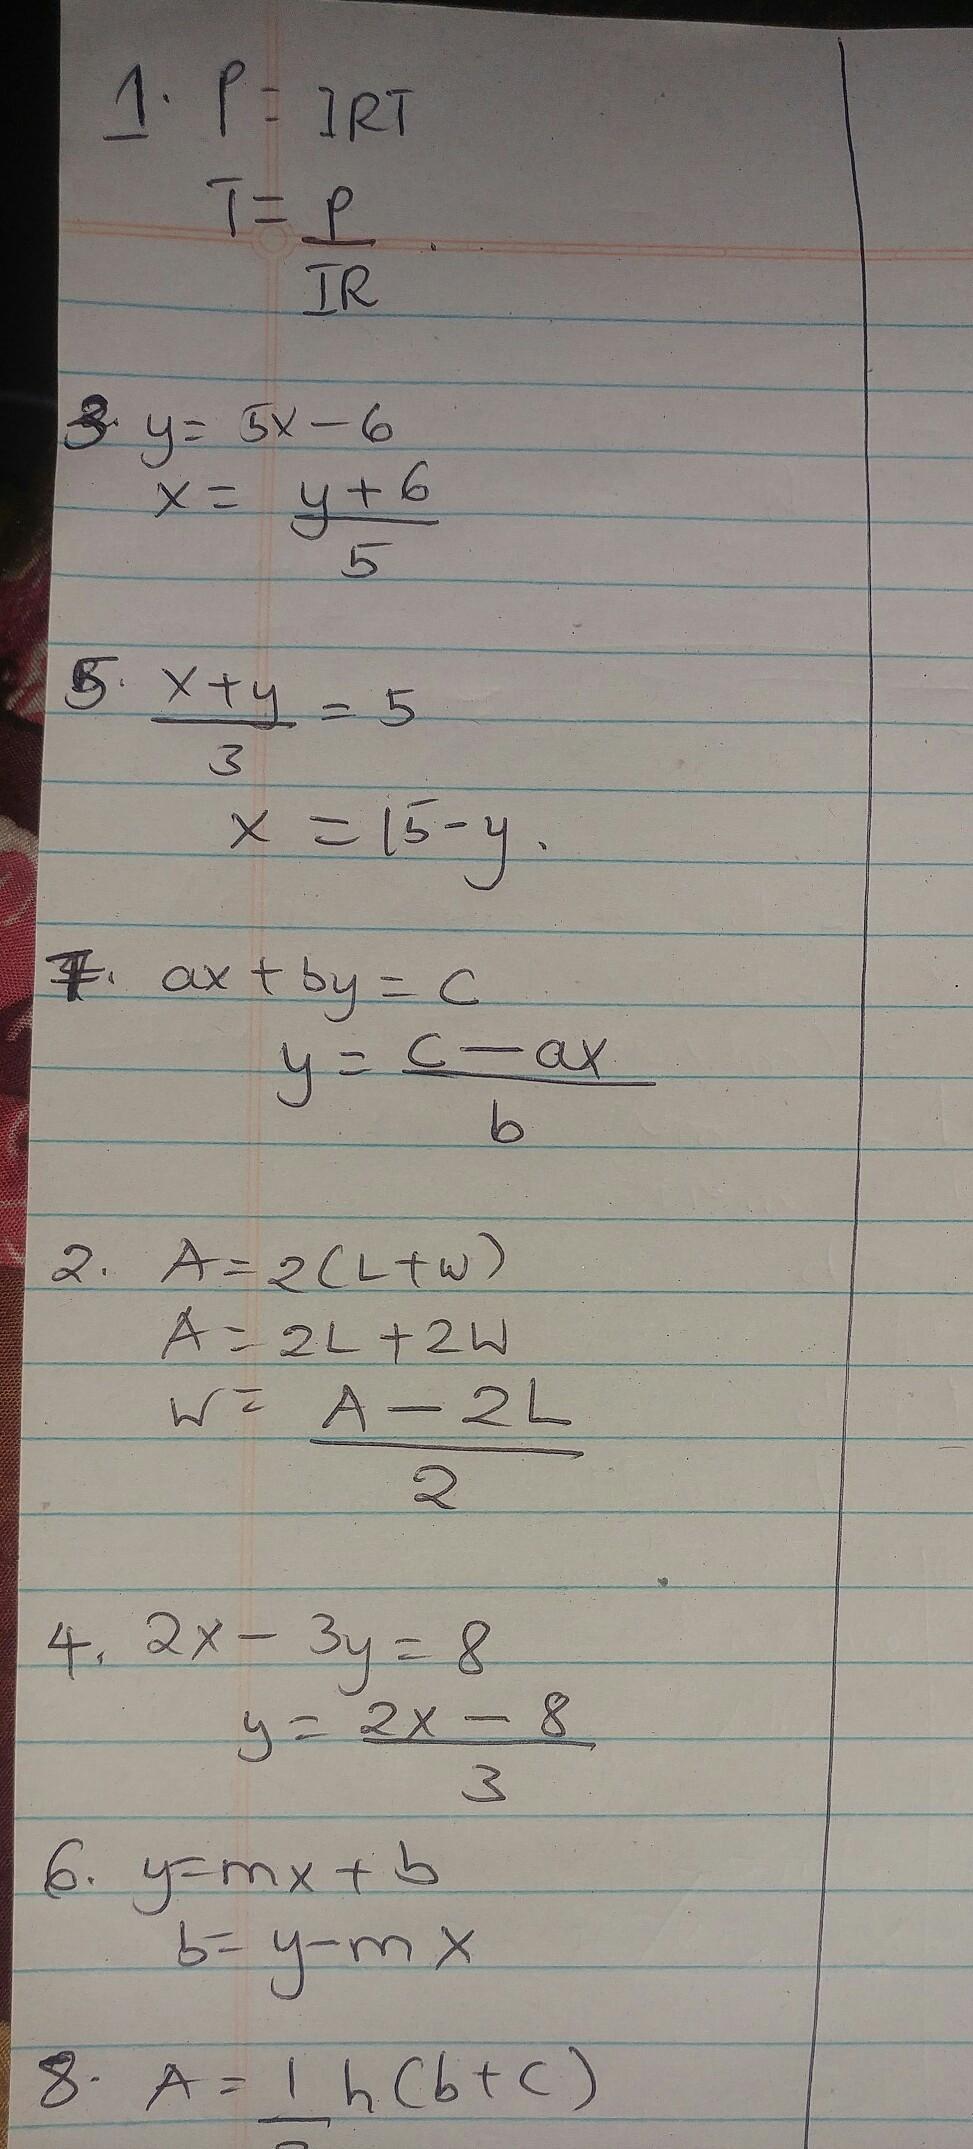 1. P = IRT
T = P
IR
3. y = 5x - 6
x = y + 6
5
5. x + y = 5
3
x = 15 - y.
7. ax + by = c
y = c - ax
b
2. A = 2(L+W)
A = 2L + 2W
W = A - 2L
2
4. 2x - 3y = 8
y = 2x - 8
3
6. y = mx + b
b = y - mx
8. A = 1 h(b+c)